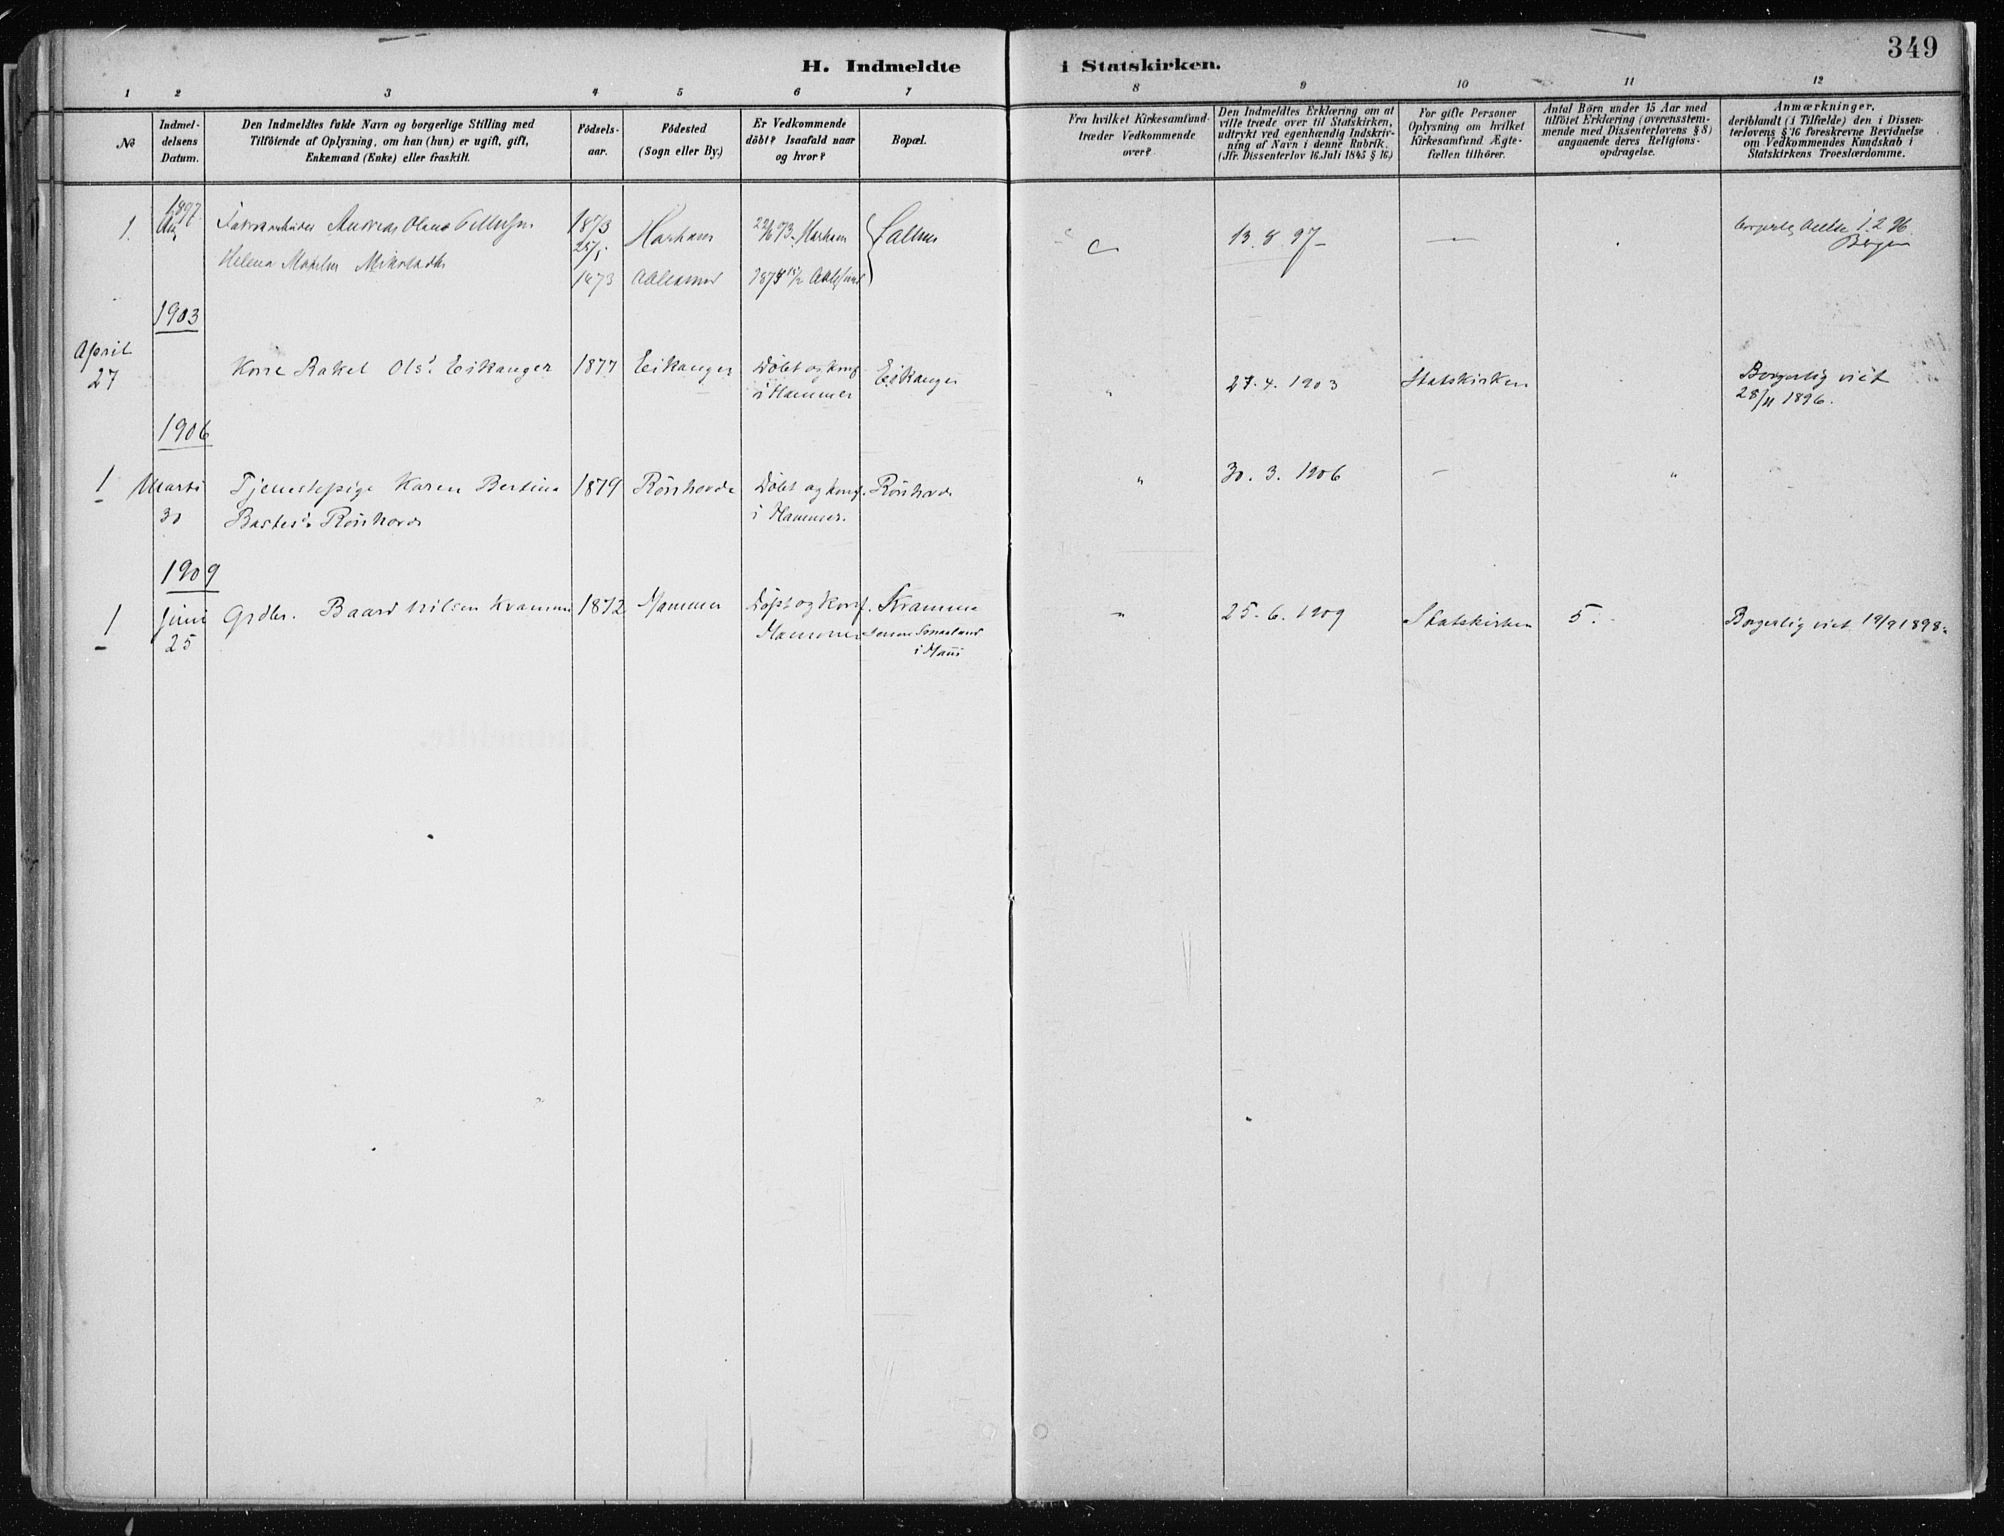 349
H. Indmeldte i Statskirken.
1 2 3 4 5 6 7 8 9 10 11 12
№
Indmel-
delsens
Datum.
Den Indmeldtes fulde Navn og borgerlige Stilling med
Tilföiende af Oplysning, om han (hun) er ugift, gift,
Enkemand (Enke) eller fraskilt.
Födsels-
aar.
Födested
(Sogn eller By.)
Er Vedkommende
döbt? Isaafald naar
og hvor?
Bopæl.
Fra hvilket Kirkesamfund
træder Vedkommende
over?
Den Indmeldtes Erklæring om at
ville træde over til Statskirken,
udtrykt ved egenhændig Indskriv-
ning af Navn i denne Rubrik.
(Jfr. Dissenterlov 16 Juli 1845 § 16.)
For gifte Personer
Oplysning om hvilket
Kirkesamfund Ægte-
fællen tilhörer.
Antal Börn under 15 Aar med
tilföiet Erklæring (overensstem-
mende med Dissenterlovens § 8)
angaaende deres Religions-
opdragelse.
Anmærkninger,
deriblandt (i Tilfælde) den i Dissen-
terlovens § 16 foreskrevne Bevidnelse
om Vedkommendes Kundskab i
Statskirkens Troeslærdomme.
1897
1. Andreas Olaus 1873 Harham Harham 13. 8 97- — 1. 2 96
25/5 Bergen
Helena 1873
1903
April
27 Rakel Ols. Eikanger 1877 Eikanger Döbt og konf. Eikanger " 27. 4. 1903 Statskirken Borgerlig viet
i Hammer 28/11 1896.
1906
1 Marts Tjenestepige Karen Bertine 1879 Röshovde Döbt og konf. " 30. 3. 1906 — "
30 i Hammer.
1909
1 Juni Grdbr. Baard Nilsen Kramme 1872 Hammer Döpt og Konf. Kramme " 25. 6. 1909 Statskirken 5. Borgerlig viet 19/9 1898.
25 Hammer